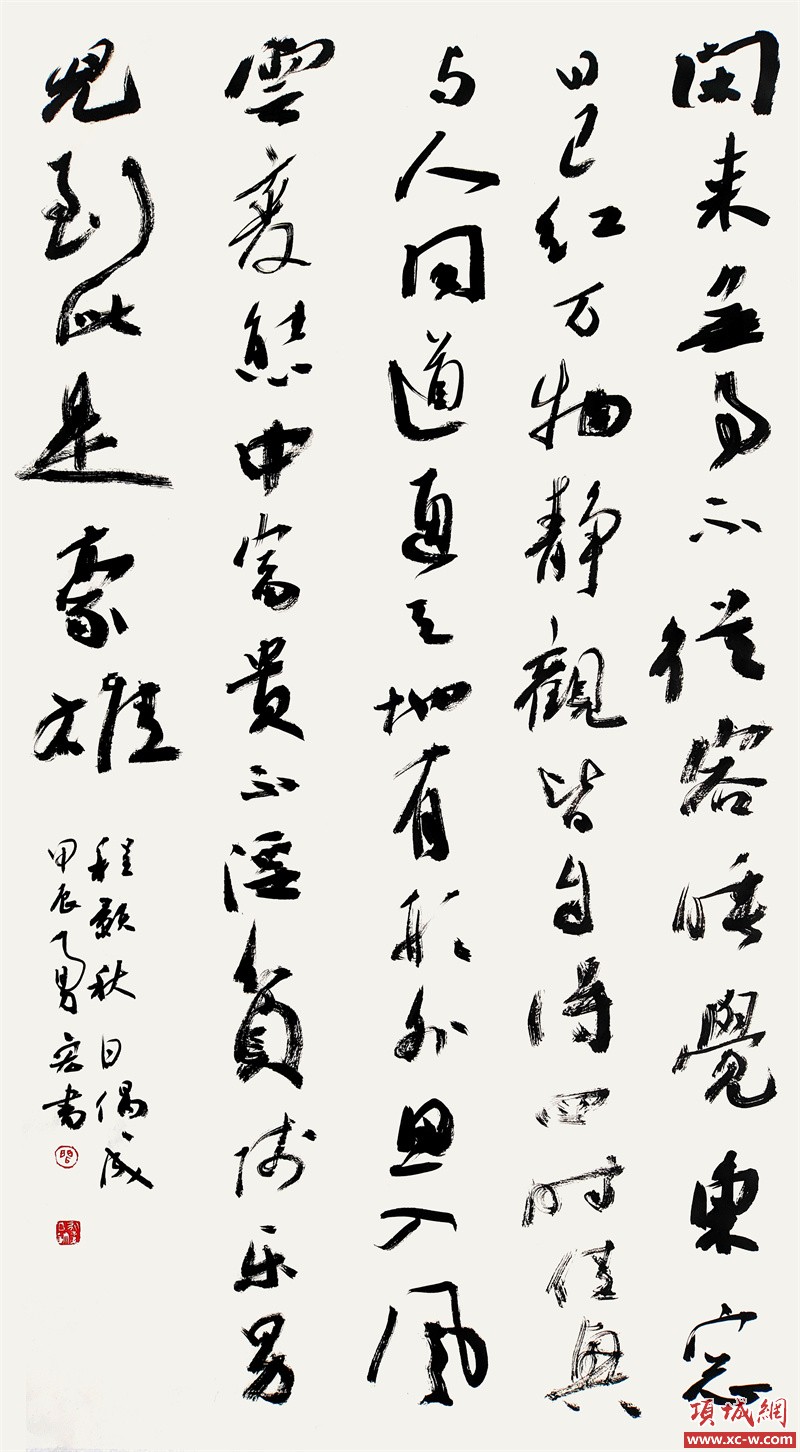 閑来無事不從容睡覺東窓
日已红万物靜觀皆自得四时佳興
与人同道通天地有形外思入風
雲變態中富貴不淫貧贱乐男
兒到此是豪雄
程颢秋日偶成
甲辰
書
項城網
www.xc-w.com